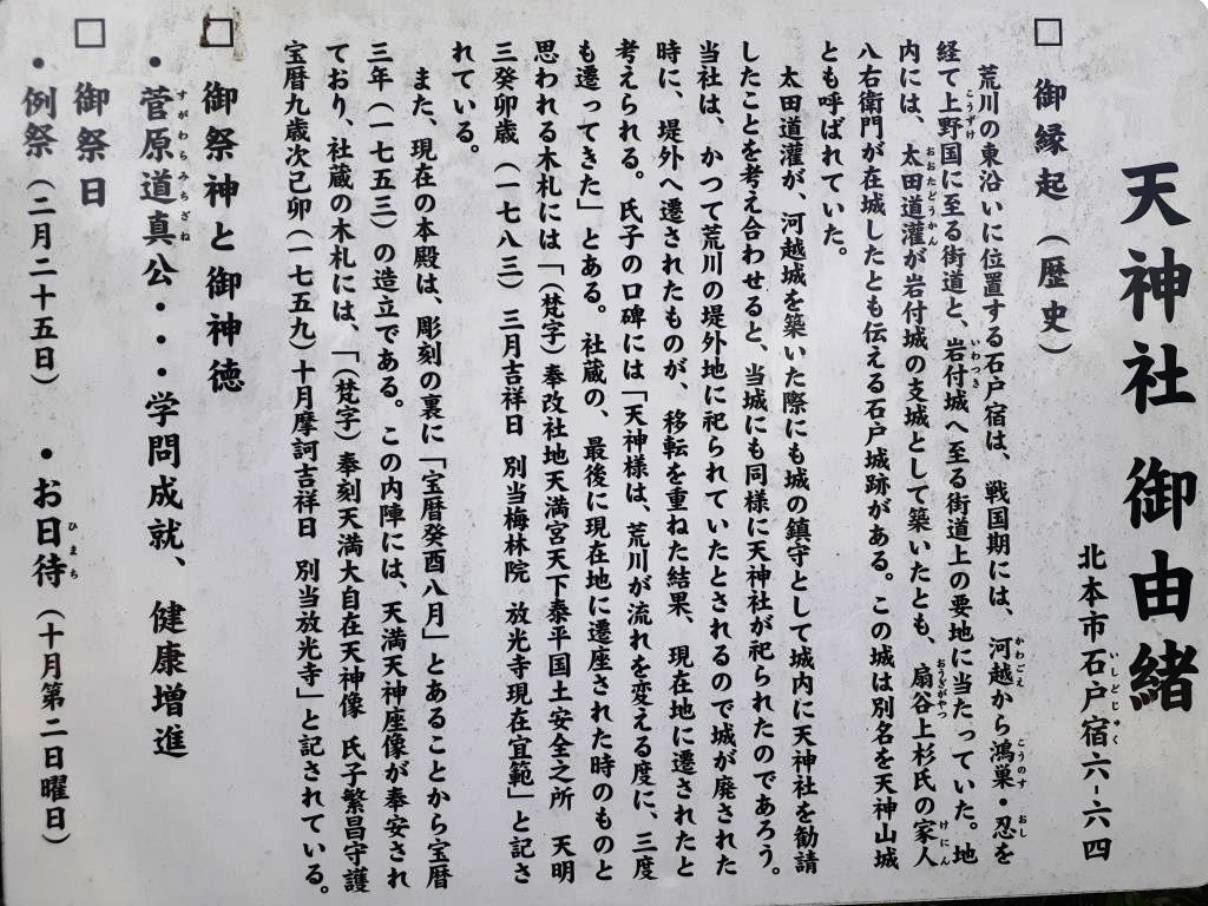 天神社 御由緒
北本市石戸宿六-六四
いしどじゅく
□ 御縁起（歴史）
荒川の東沿いに位置する石戸宿は、戦国期には、河越から鴻巣・忍を
かわごえ こうのす おし
経て上野国に至る街道と、岩付城へ至る街道上の要地に当たっていた。地
こうずけ いわつき
内には、太田道灌が岩付城の支城として築いたとも、扇谷上杉氏の家人
おおたどうかん おうぎがやつ けにん
八右衛門が在城したとも伝える石戸城跡がある。この城は別名を天神山城
とも呼ばれていた。
太田道灌が、河越城を築いた際にも城の鎮守として城内に天神社を勧請
したことを考え合わせると、当城にも同様に天神社が祀られたのであろう。
当社は、かつて荒川の堤外地に祀られていたとされるので城が廃された
時に、堤外へ遷されたものが、移転を重ねた結果、現在地に遷されたと
考えられる。氏子の口碑には「天神様は、荒川が流れを変える度に、三度
も遷ってきた」とある。社蔵の、最後に現在地に遷座された時のものと
思われる木札には「（梵字）奉改社地天満宮天下泰平国土安全之所 天明
三癸卯歳（一七八三）三月吉祥日 別当梅林院 放光寺現在宜範」と記さ
れている。
また、現在の本殿は、彫刻の裏に「宝暦癸酉八月」とあることから宝暦
三年（一七五三）の造立である。この内陣には、天満天神座像が奉安され
ており、社蔵の木札には、「（梵字）奉刻天満大自在天神像 氏子繁昌守護
宝暦九歳次己卯（一七五九）十月摩訶吉祥日 別当放光寺」と記されている。
□ 御祭神と御神徳
・菅原道真公・・・学問成就、健康増進
すがわらみちざね
□ 御祭日
・例祭（二月二十五日） ・お日待（十月第二日曜日）
ひまち